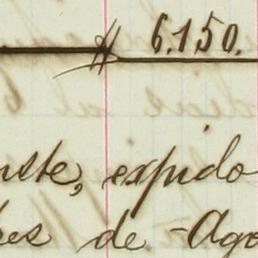 # 6.150.
nste, expido
es de Ago